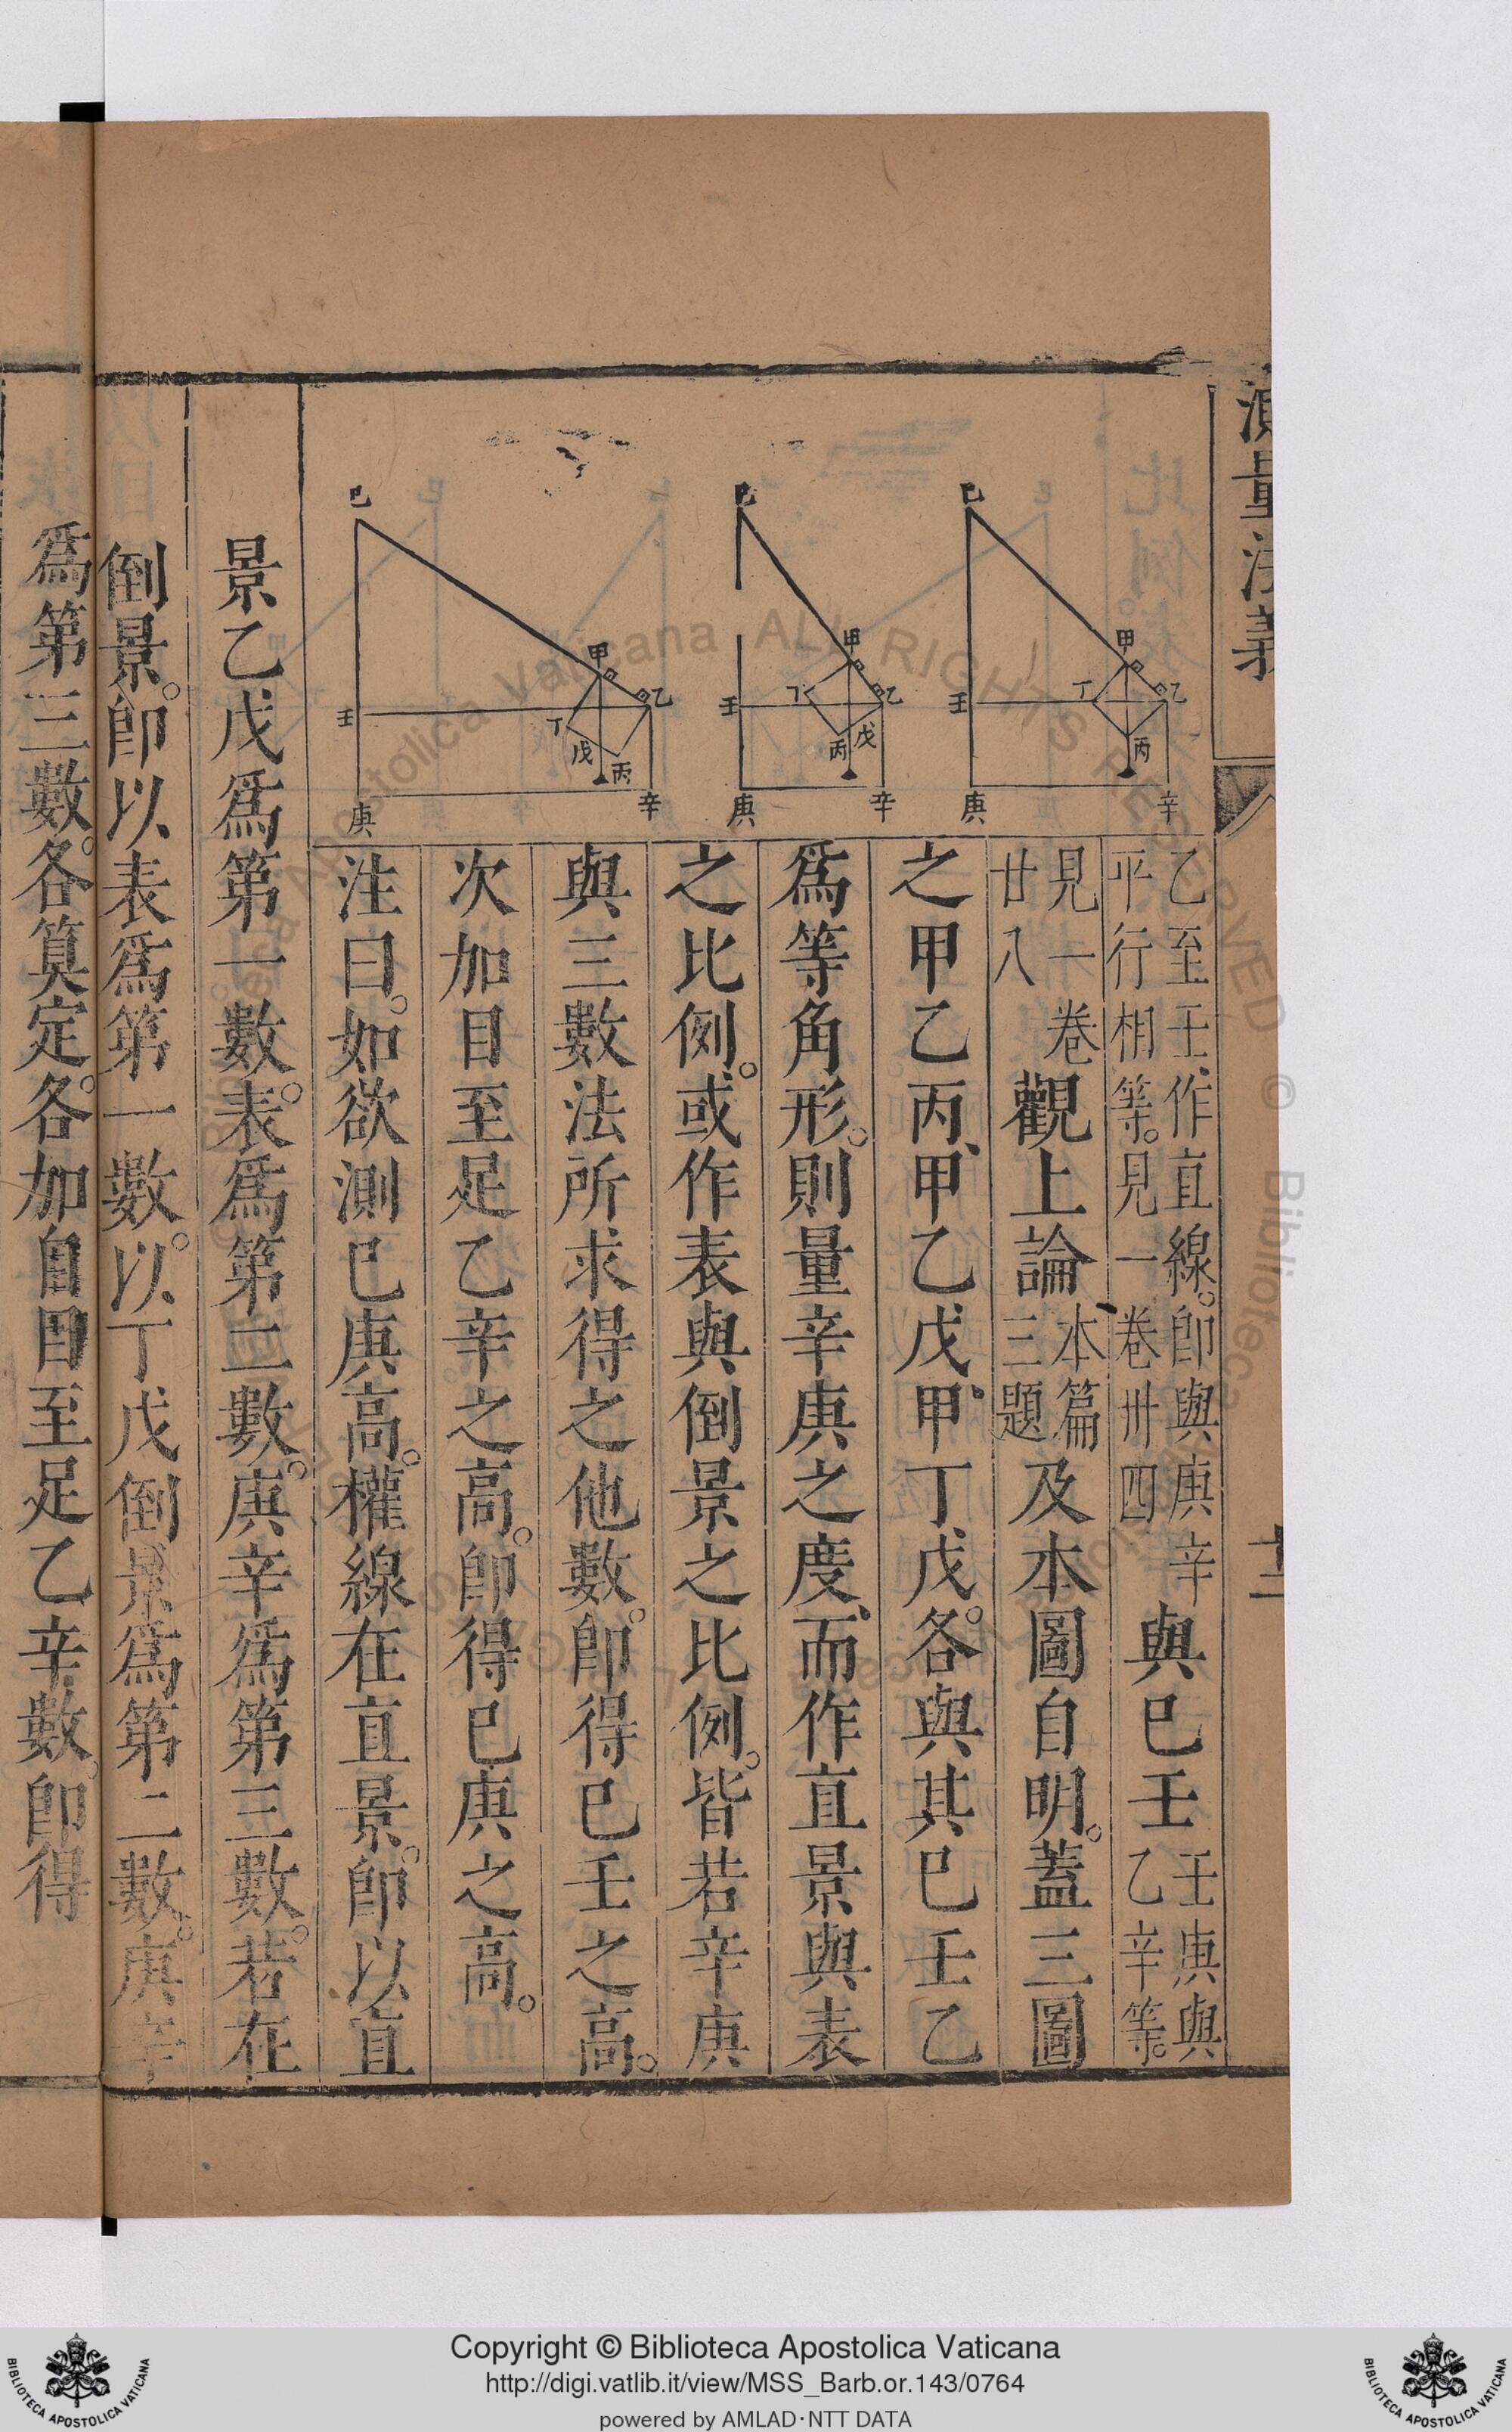 測量法義
十二
乙至壬作直線。卽與庚辛
平行相等。見一卷卅四
與巳壬
壬庚與
乙辛等。
見一卷
廿八
觀上論、
本篇
三題
及本圖自明。蓋三圖
之甲乙丙、甲乙戊、甲丁戊。各與其巳壬乙
爲等角形。則量辛庚之度、而作直景與表
之比例。或作表與倒景之比例。皆若辛庚
與三數法所求得之他數。卽得巳壬之高。
次加目至足乙辛之高。卽得巳庚之高。
注曰。如欲測巳庚高。權線在直景。卽以直
景乙戊爲第一數。表爲第二數。庚辛爲第三數。若在
倒景。卽以表爲第一數。以丁戊倒景爲第二數。庚辛
爲第三數。各算定。各加自目至足乙辛數。卽得
巳 甲 乙 丁 丙 壬 庚 辛
巳 甲 乙 丁 丙 戊 壬 庚 辛
巳 甲 乙 丁 戊 丙 壬 庚 辛
Copyright © Biblioteca Apostolica Vaticana
http://digi.vatlib.it/view/MSS_Barb.or.143/0764
powered by AMLAD·NTT DATA
BIBLIOTECA APOSTOLICA VATICANA
BIBLIOTECA APOSTOLICA VATICANA